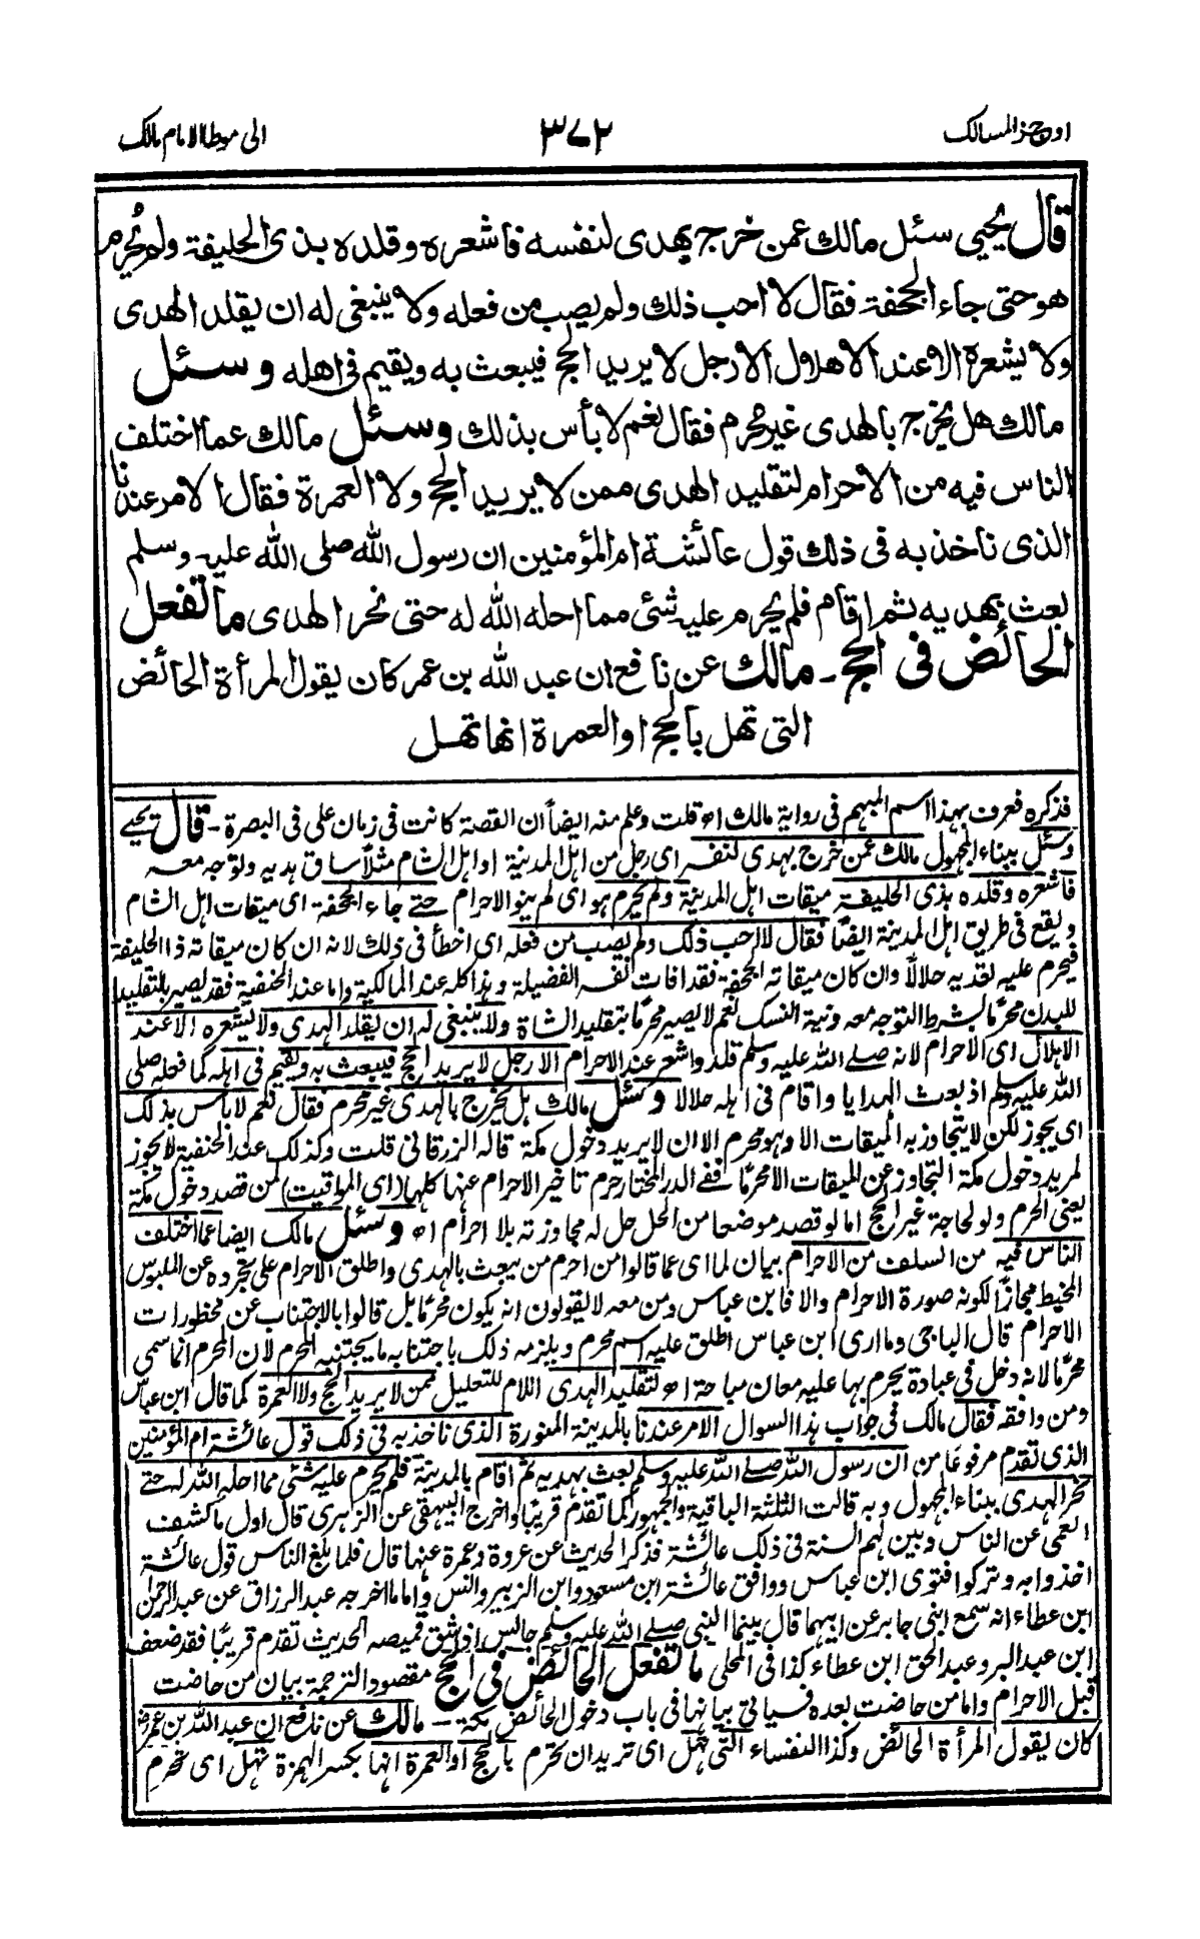 اوجز المسالك ٣٧٢ الى موطا الامام مالك
قال يحيى سئل مالك عمن خرج بهدى لنفسه فاشعره وقلده بذى الحليفة ولم يُحرم
هو حتى جاء الجحفة فقال لا احب ذلك ولم يصب من فعله ولا ينبغى له ان يقلد الهدى
ولا يشعره الا عند الاهلال الا رجل لا يريد الحج فيبعث به ويقيم فى اهله وسئل
مالك هل يخرج بالهدى غير محرم فقال نعم لا بأس بذلك وسئل مالك عما اختلف
الناس فيه من الاحرام لتقليد الهدى ممن لا يريد الحج ولا العمرة فقال الامر عندنا
الذى ناخذ به فى ذلك قول عائشة ام المؤمنين ان رسول الله صلى الله عليه وسلم
بعث بهديه ثم اقام فلم يحرم عليه شئى مما احله الله له حتى نحر الهدى ما تفعل
الحائض فى الحج ـ مالك عن نافع ان عبد الله بن عمر كان يقول المرأة الحائض
التى تهل بالحج او العمرة انها تهل
فذكره فعرف بهذا اسم المبهم فى رواية مالك اھ قلت وعلم منه ايضاً ان القصة كانت فى زمان على فى البصرة ـ قال يحيے
وسئل ببناء المجهول مالك عمن خرج بهدى لنفسه اى رجل من اهل المدينة او اهل الشام مثلاً ساق هديه وتوجه معه
فاشعره وقلده بذى الحليفة ميقات اهل المدينة ولم يحرم هو اى لم ينو الاحرام حتے جاء الجحفة اى ميقات اهل الشام
ويقع فى طريق اهل المدينة ايضاً فقال لا احب ذلك ولم يصب من فعله اى اخطأ فى ذلك لانه ان كان ميقاته ذا الحليفة
فيحرم عليه تعديه حلالاً وان كان ميقاته الجحفة فقد افات نفسه الفضيلة وهذا كله عند المالكية واما عند الحنفية فقد يصير بالتقليد
للبدن محرماً بشرط التوجه معه ونية النسك نعم لا يصير محرماً بتقليد الشاة ولا ينبغى له ان يقلد الهدى ولا يشعره الا عند
الاهلال اى الاحرام لانه صلے الله عليه وسلم قلد واشعر عند الاحرام الا رجل لا يريد الحج فيبعث به ويقيم فى اهله كما فعله صلى
الله عليه وسلم اذ بعث الهدايا واقام فى اهله حلالا وسئل مالك هل يخرج بالهدى غير محرم فقال نعم لا باس بذلك
اى يجوز لكن لا يتجاوز به الميقات الا وهو محرم الا ان لا يريد دخول مكة قاله الزرقانى قلت وكذلك عند الحنفية لا يجوز
لمريد دخول مكة التجاوز عن الميقات الا محرماً ففى الدر المختار حرم تاخير الاحرام عنها كلها (اى المواقيت) لمن قصد دخول مكة
يعنى الحرم ولو لحاجة غير الحج اما لو قصد موضعا من الحل حل له مجاوزته بلا احرام اھ وسئل مالك ايضا عما اختلف
الناس فيه من السلف من الاحرام بيان لما اى عما قالوا من احرم من يبعث بالهدى واطلق الاحرام على تجرده عن الملبوس
المخيط مجازاً لكونه صورة الاحرام والا فابن عباس ومن معه لا يقولون انه يكون محرماً بل قالوا بالاجتناب عن محظورات
الاحرام قال الباجى وما ارى ابن عباس اطلق عليه اسم محرم ويلزمه ذلك باجتنابه ما يجتنبه المحرم لان المحرم انما سمى
محرماً لانه دخل فى عبادة يحرم بها عليه معان مباحة اھ لتقليد الهدى اللام للتعليل ممن لا يريد الحج ولا العمرة كما قال ابن عباس
ومن وافقه فقال مالك فى جواب هذا السوال الامر عندنا بالمدينة المنورة الذى ناخذ به فى ذلك قول عائشة ام المؤمنين
الذى تقدم مرفوعاً من ان رسول الله صلے الله عليه وسلم بعث بهديه ثم اقام بالمدينة فلم يحرم عليه شئى مما احله الله له حتے
نحر الهدى ببناء المجهول وبه قالت الثلثة الباقية والجمهور كما تقدم قريباً واخرج البيهقى عن الزهرى قال اول ما كشف
العمى عن الناس وبين لهم السنة فى ذلك عائشة فذكر الحديث عن عروة وعمرة عنها قال فلما بلغ الناس قول عائشة
اخذوا به وتركوا فتوى ابن عباس ووافق عائشة ابن مسعود وابن الزبير وانس واما ما اخرجه عبد الرزاق عن عبد الرحمن
ابن عطاء انه سمع ابنى جابر عن ابيهما قال بينما النبى صلے الله عليه وسلم جالس اذ شق قميصه الحديث تقدم قريباً فقد ضعفه
ابن عبد البر وعبد الحق ابن عطاء كذا فى المحلى ما تفعل الحائض فى الحج مقصود الترجمة بيان من حاضت
قبل الاحرام واما من حاضت بعده فسياتى بيانها فى باب دخول الحائض مكة ـ مالك عن نافع ان عبد الله بن عمر رض
كان يقول المرأة الحائض وكذا النفساء التى تهل اى تريد ان تحرم بالحج او العمرة انها بكسر الهمزة تهل اى تحرم